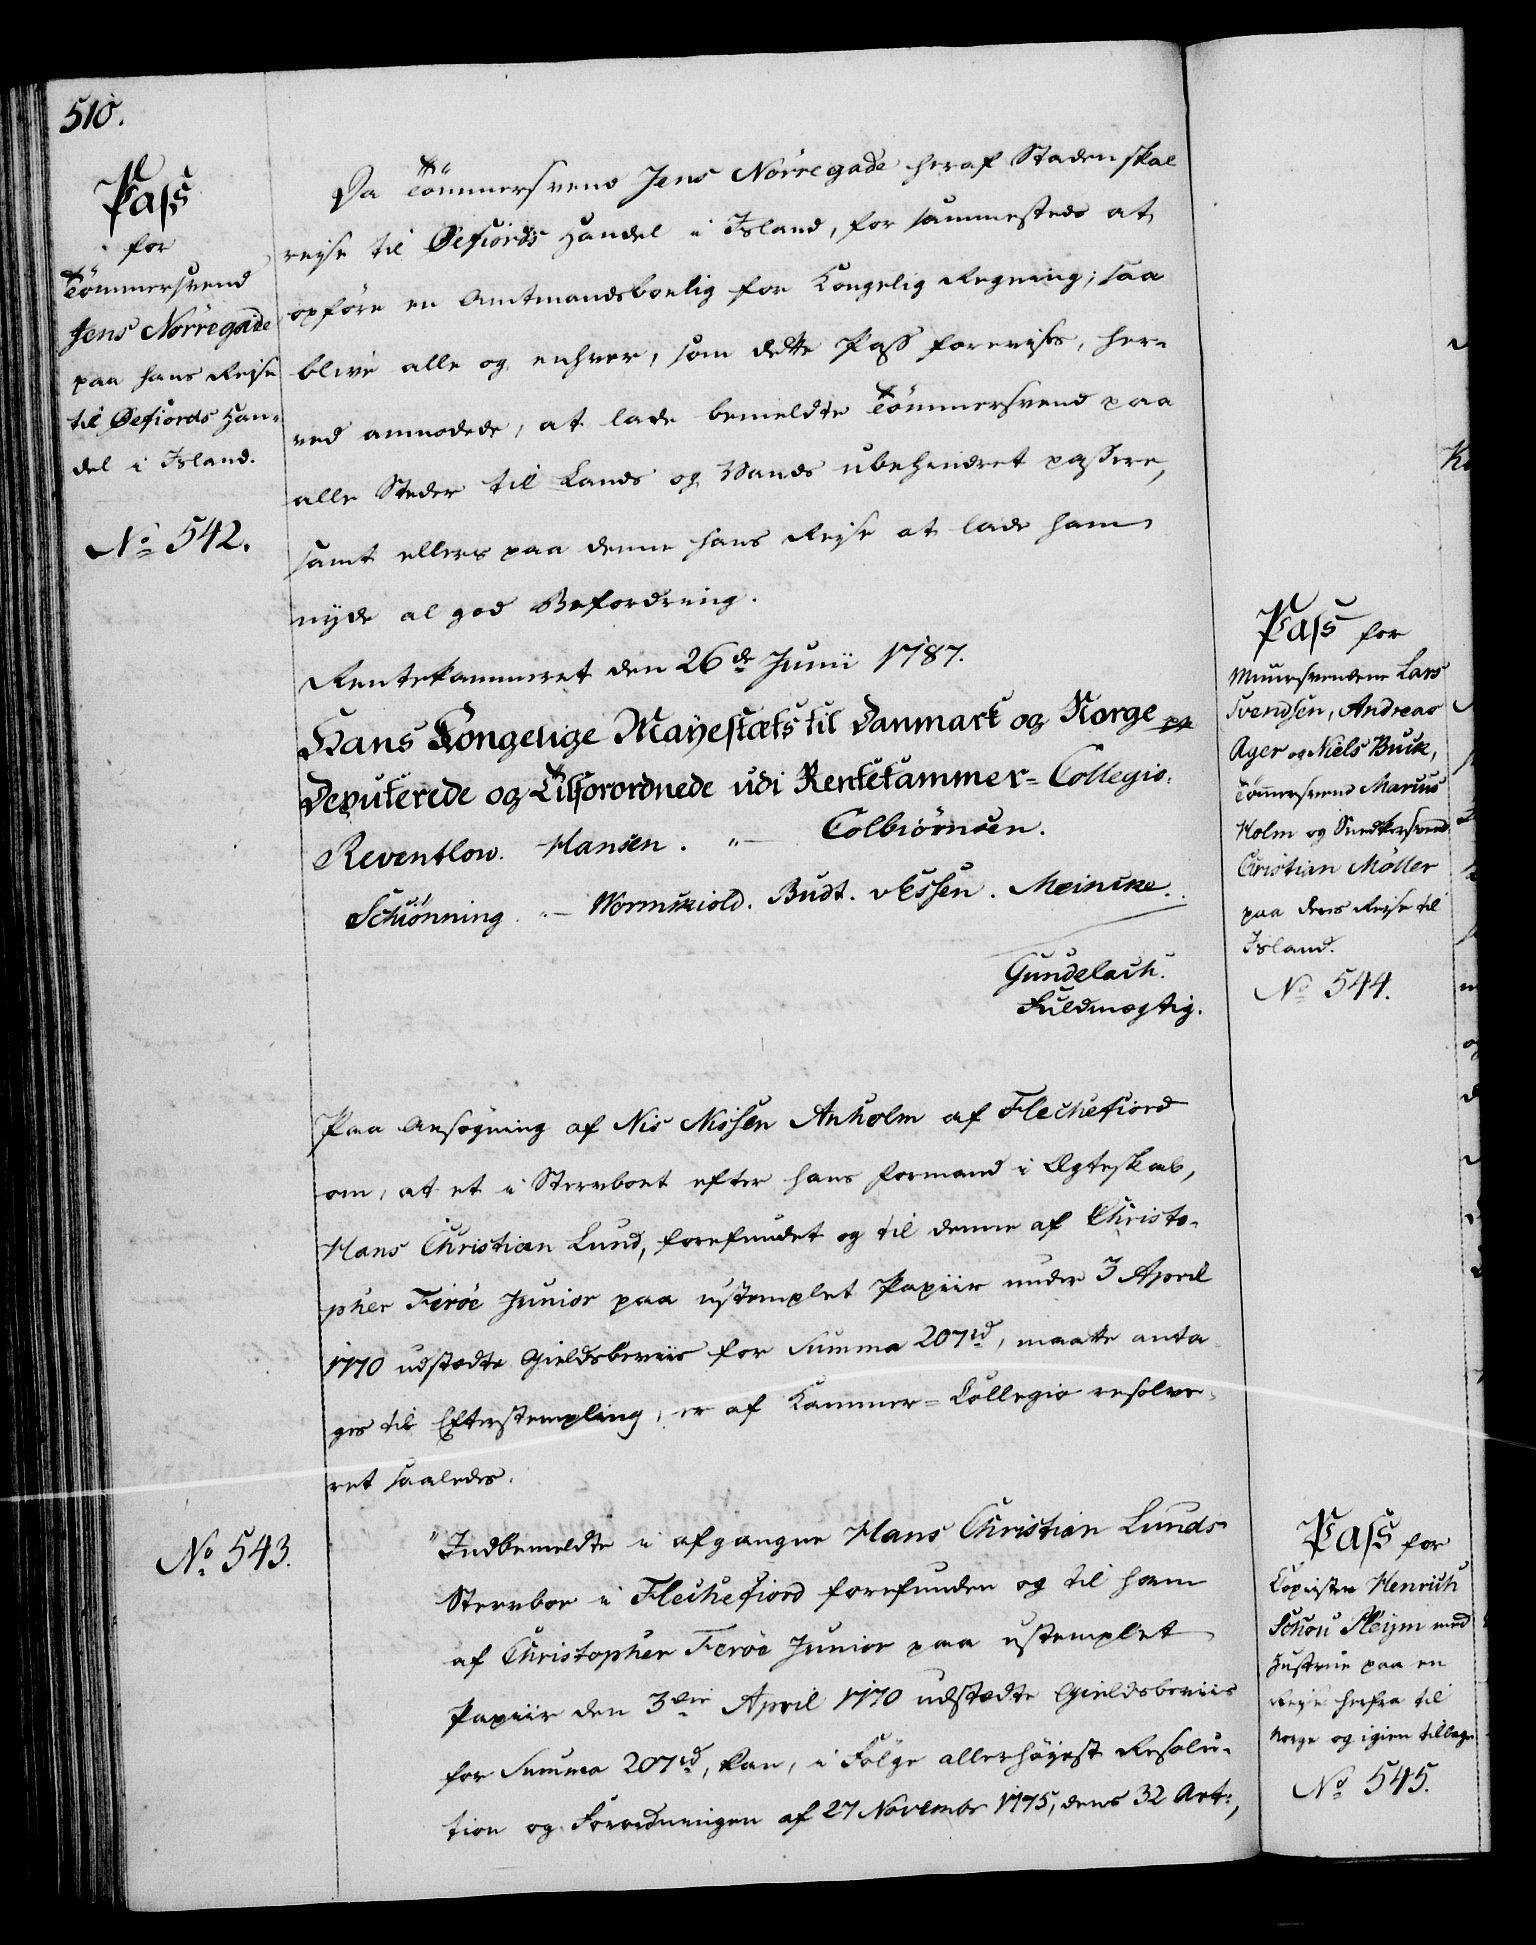 510.
Pass
for
Tömmersvend
Jens Nørregade
paa hans Rejse
til Øefiords Han-
del i Island.
No 542.
Da Tömmersvend Jens Nørregade heraf Staden skal
rejse til Øefiords Handel i Island, for sammesteds at
opføre en Amtmandsboelig for Kongelig Regning; saa
blive alle og enhver, som dette Pass forevises, her-
ved anmodede, at lade bemeldte Tömmersvend paa
alle Steder til Lands og Vands ubehindret passere,
samt ellers paa denne hans Rejse at lade ham
nyde al god Befordring.
Rentekammeret den 26de Junii 1787.
Hans Kongelige Mayestæts til Danmark og Norge pp
Deputerede og Tilforordnede udi Rentekammer-Collegio.
Reventlow. Hansen. „— Colbiörnsen.
Schiønning „— Wormskiold. Budt. v Essen. Meincke.
Gundelach.
Fuldmægtig.
Paa Ansøgning af Nis Nissen Anholm af Flechefiord
om, at et i Sterboet efter hans Formand i Ægteskab,
Hans Christian Lund, forefundet og til denne af Christo-
pher Feröe Junior paa ustemplet Papiir under 3 April
1770 udstædte Gieldsbeviis for Summa 207rd, maatte anta-
ges til Efterstempling, er af Kammer-Collegio resolve-
ret saaledes.
No 543.
"Indbemeldte i afgangne Hans Christian Lunds
Sterboe i Flechefiord forefunden og til ham
af Christopher Feröe Junior paa ustemplet
Papiir den 3die April 1770 udstædte Gieldsbeviis
for Summa 207rd, kan, i Følge allerhøyest Resolu-
tion og Forordningen af 27 Novembr 1775, dens 32 Art:,
Pass for
Muursvendene Lars
Svendsen, Andreas
Ager og Niels Buck,
Tömmersvend Marius
Holm og Snedkersvend
Christian Möller
paa deres Rejse til
Island.
No 544.
Pass for
Copiisten Henrich
Schou Fleÿm med
Hustrue paa en
Rejse herfra til
Norge og igien tilbage
No 545.